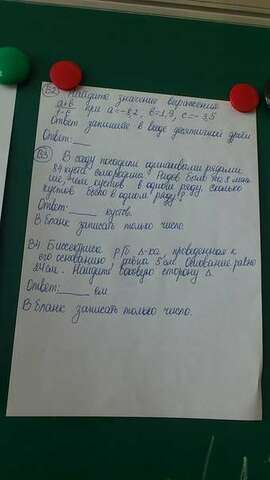 В2 Найдите значение выражения
a+b/1-c при a=-8,2, b=1,9, c=-3,5
Ответ запишите в виде десятичной дроби
Ответ:___
В3 В саду посадили одинаковыми рядами
84 куста смородины. Рядов было на 8 мень
ше, чем кустов в одном ряду. Сколько
кустов было в одном ряду?
Ответ:_____ кустов.
В бланк записать только число
В4 Биссектриса р/б Δ-ка, проведенная к
его основанию, равна 5 см. Основание равно
24 см. Найдите боковую сторону Δ.
Ответ:_____ см
В бланк записать только число.